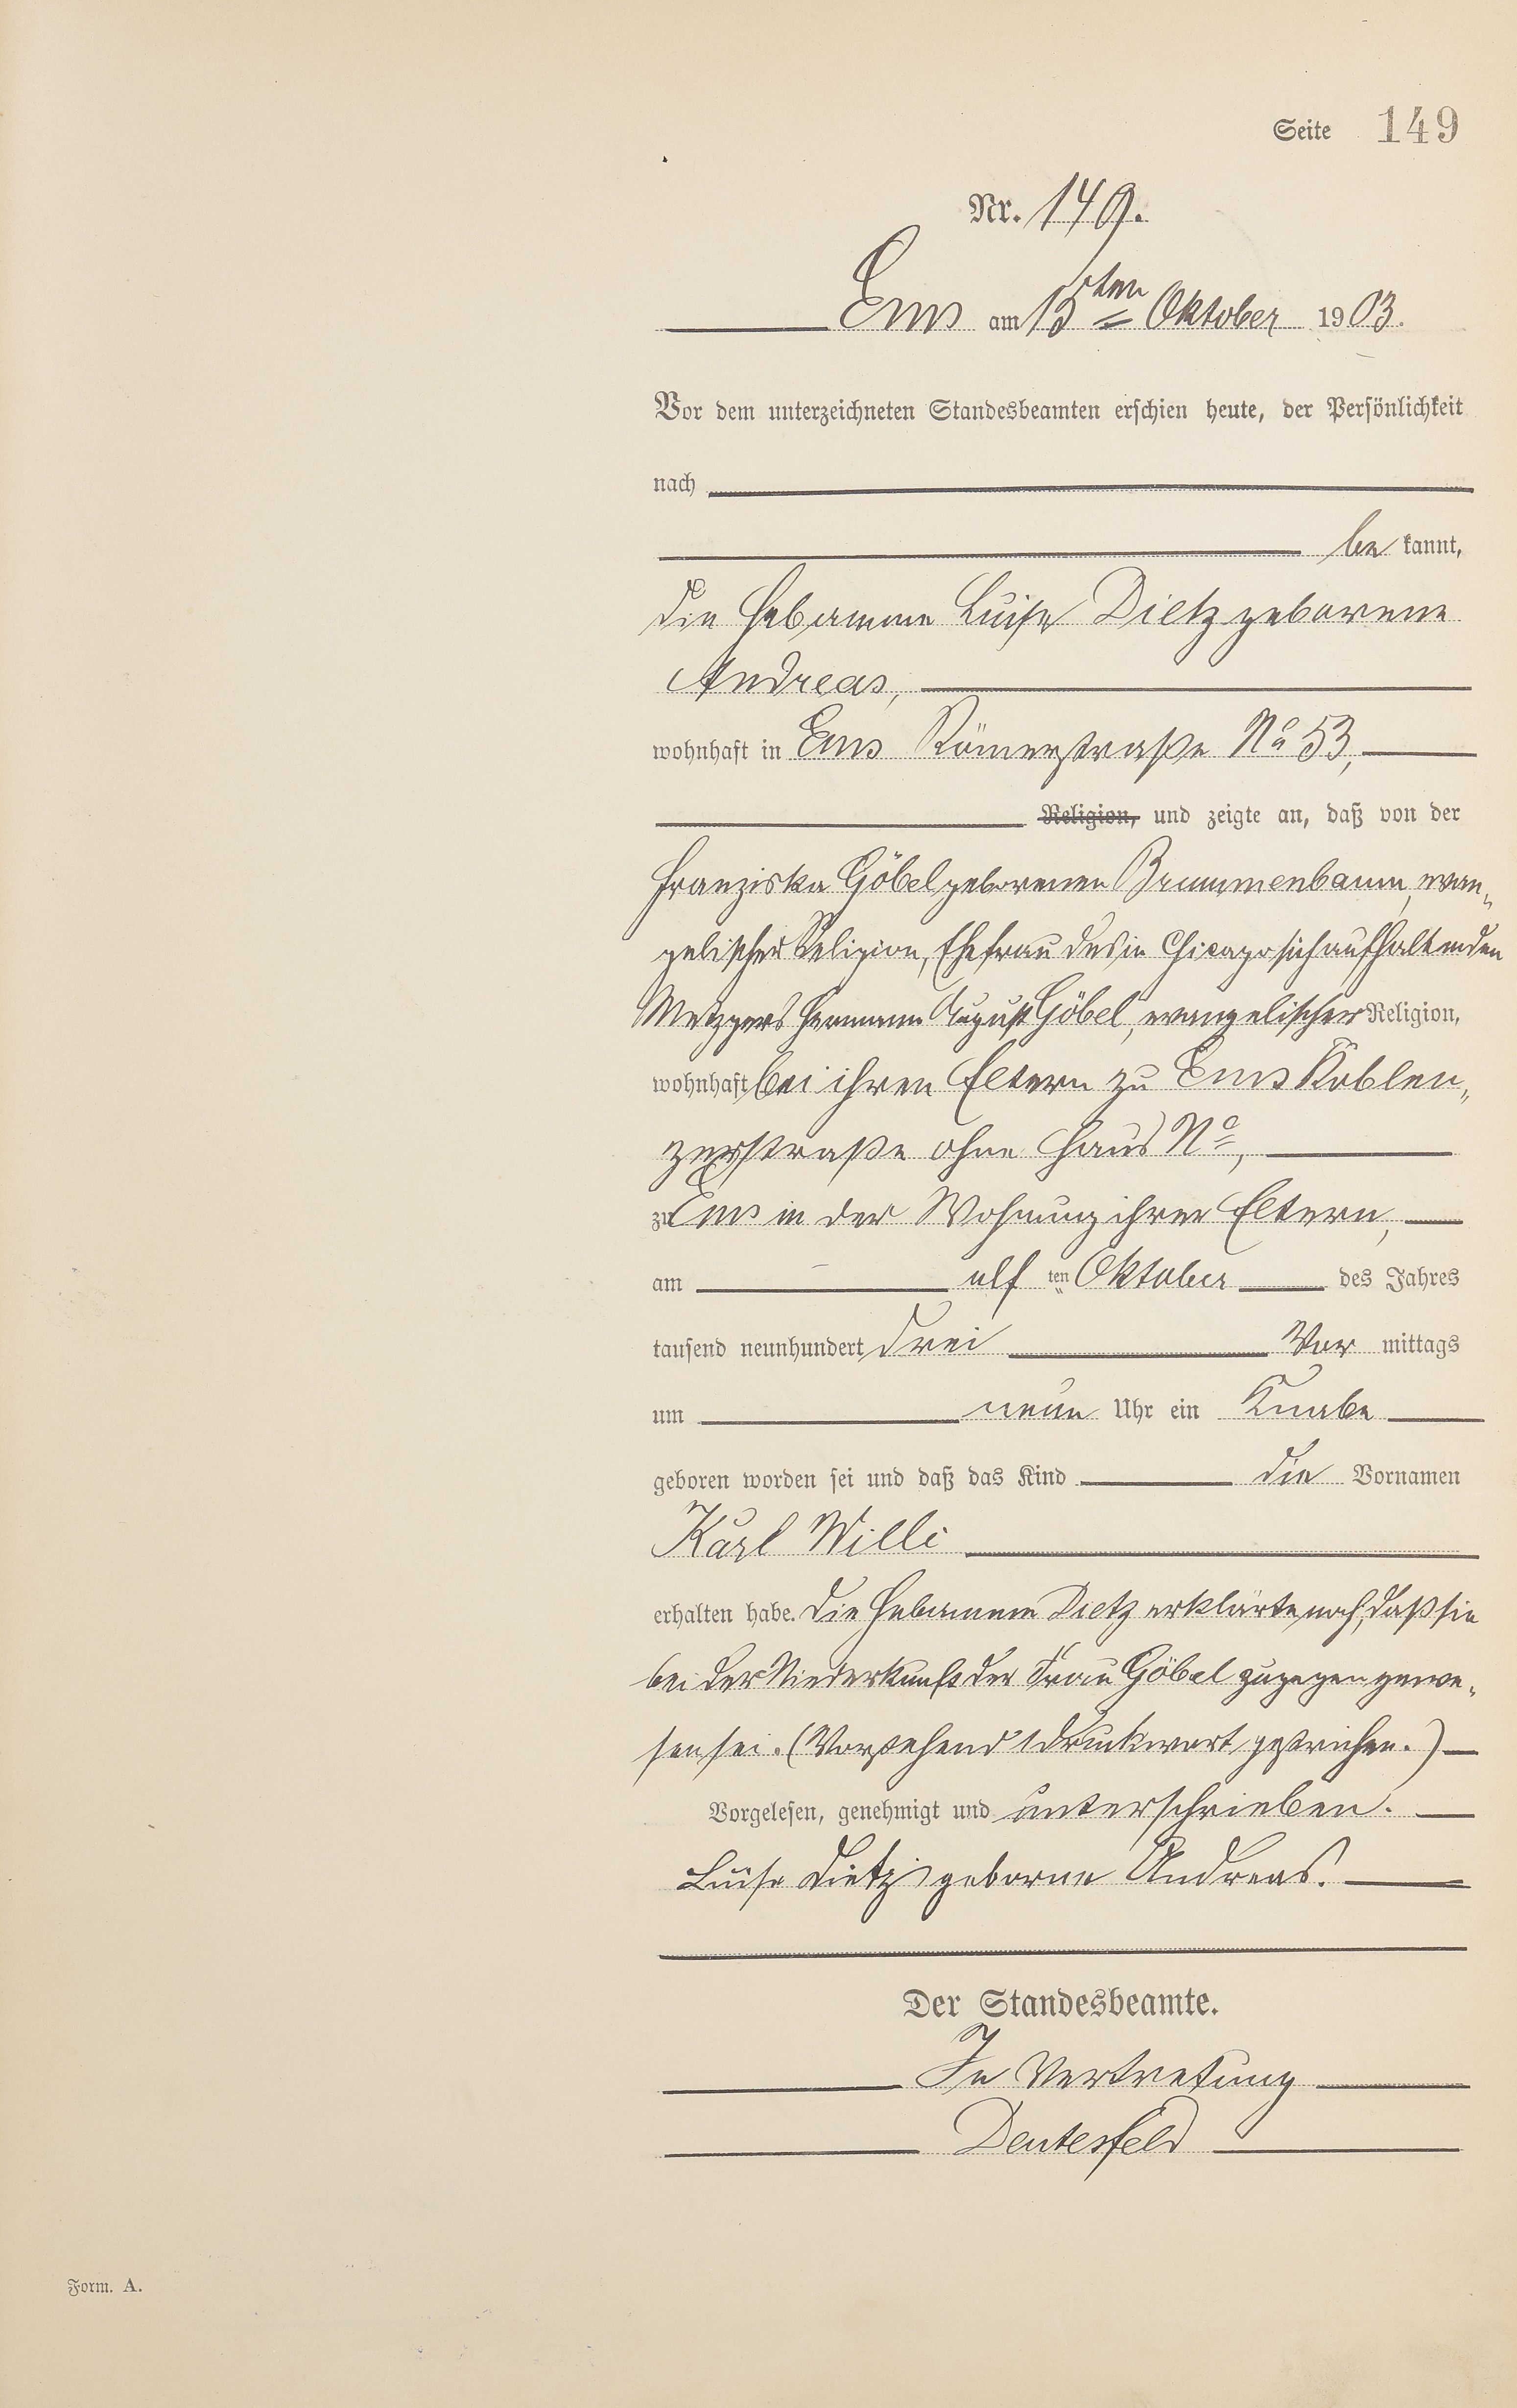 Seite 149
Nr. 149.
Ems am 15ten Oktober 1903.
Vor dem unterzeichneten Standesbeamten erschien heute, der Persönlichkeit
nach
be kannt,
die Hebamme Luise Dietz geborene
Andreas,
wohnhaft in Ems Römerstraße No 53,
Religion, und zeigte an, daß von der
Franziska Göbel geborenen Brummenbaum, evan„
gelischer Religion, Ehefrau des in Chicago sich aufhaltenden
Metzgers Hermann August Göbel, evangelischer Religion,
wohnhaft bei ihren Eltern zu Ems Koblen„
zerstraße ohne Haus No,
zu Ems in der Wohnung ihrer Eltern,
am elf ten Oktober des Jahres
tausend neunhundert drei Vor mittags
um neun Uhr ein Knabe
geboren worden sei und daß das Kind die Vornamen
Karl Willi
erhalten habe. Die Hebamme Dietz erklärte noch, daß sie
bei der Niederkunft der Frau Göbel zugegen gewe„
sen sei. (Vorstehend 1 Druckwort gestrichen.)
Vorgelesen, genehmigt und unterschrieben.
Luise Dietz geborne Andreas.
Der Standesbeamte.
In Vertretung
Deutesfeld
Form. A.